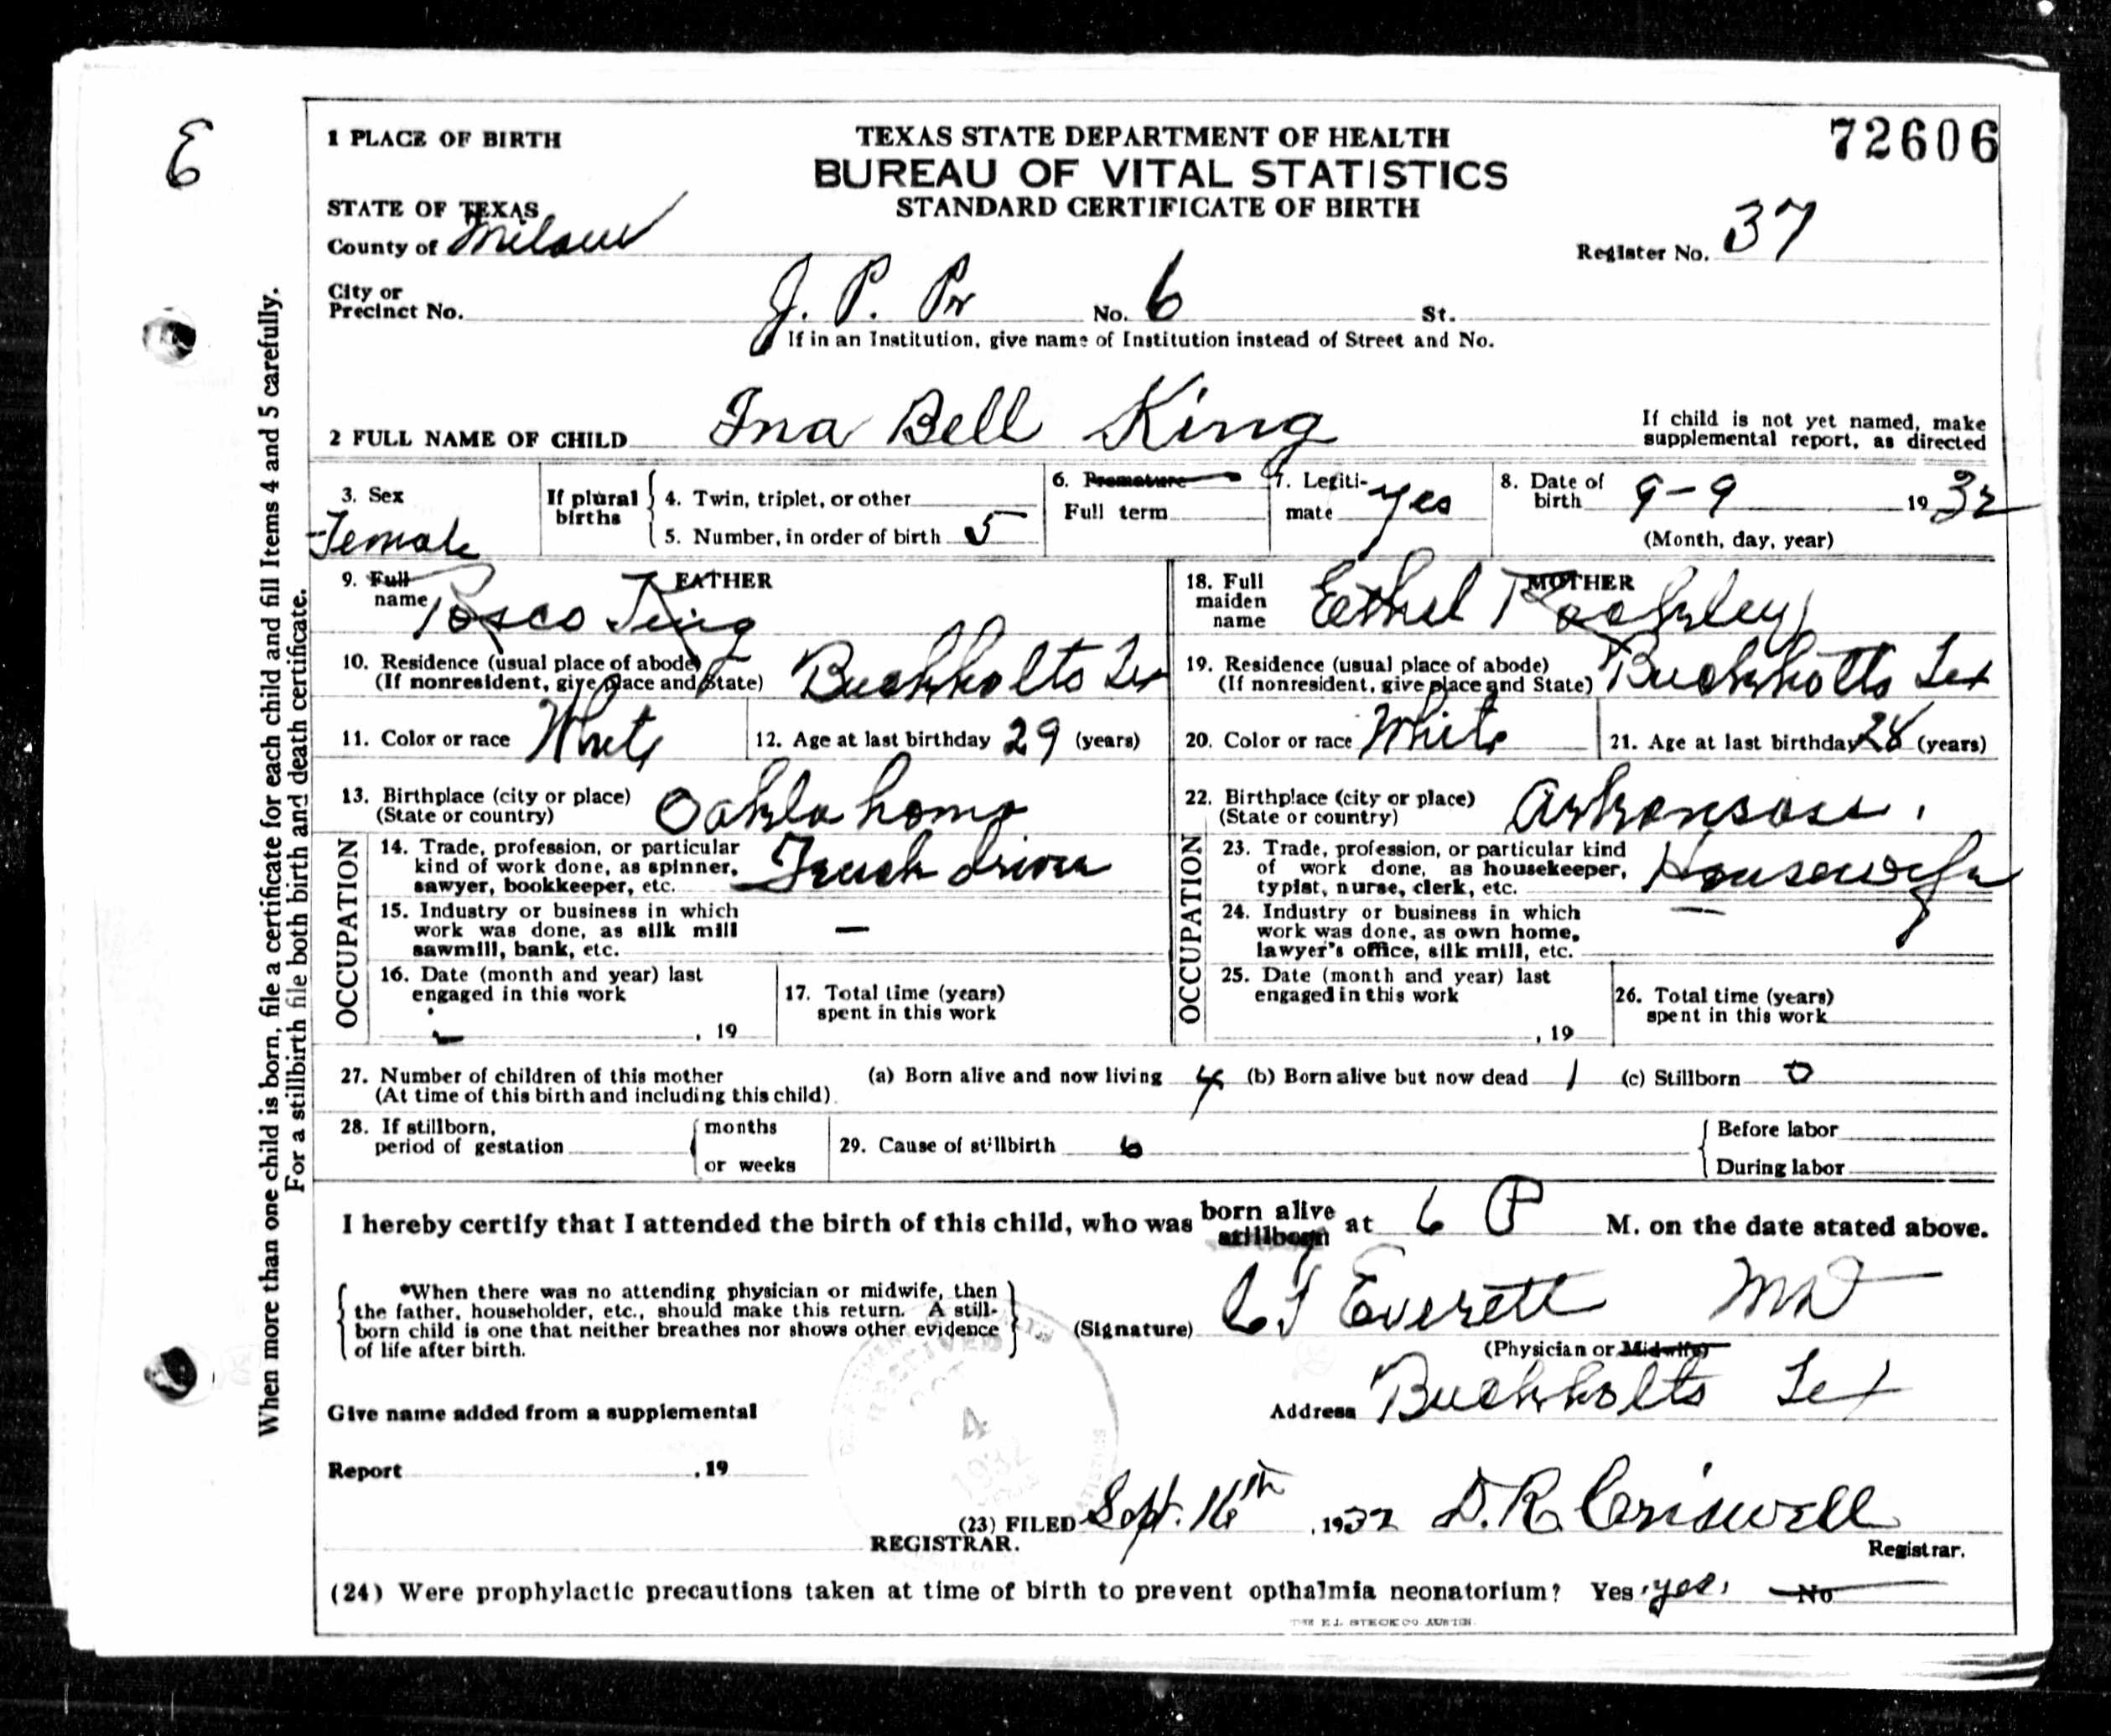 E
1 PLACE OF BIRTH
TEXAS STATE DEPARTMENT OF HEALTH
72606
BUREAU OF VITAL STATISTICS
STATE OF TEXAS
STANDARD CERTIFICATE OF BIRTH
County of Milam
Register No. 37
City or
Precinct No. J. P. Pr No. 6 St.
If in an Institution, give name of Institution instead of Street and No.
2 FULL NAME OF CHILD Ina Bell King
If child is not yet named, make
supplemental report, as directed
3. Sex Female
If plural births
4. Twin, triplet, or other
5. Number, in order of birth 5
6. Premature
Full term
7. Legiti-
mate yes
8. Date of
birth 9-9 1932
(Month, day, year)
9. Full FATHER
name King
10. Residence (usual place of abode)
(If nonresident, give place and State) Buckholts Tex
11. Color or race White
12. Age at last birthday 29 (years)
13. Birthplace (city or place)
(State or country) Oaklahoma
OCCUPATION
14. Trade, profession, or particular
kind of work done, as spinner,
sawyer, bookkeeper, etc. Truck driver
15. Industry or business in which
work was done, as silk mill
sawmill, bank, etc. —
16. Date (month and year) last
engaged in this work
, 19
17. Total time (years)
spent in this work
18. Full MOTHER
maiden
name Ethel
19. Residence (usual place of abode)
(If nonresident, give place and State) Buckholts Tex
20. Color or race White
21. Age at last birthday 28 (years)
22. Birthplace (city or place)
(State or country) Arkansas.
OCCUPATION
23. Trade, profession, or particular kind
of work done, as housekeeper,
typist, nurse, clerk, etc. Housewife
24. Industry or business in which
work was done, as own home,
lawyer's office, silk mill, etc. —
25. Date (month and year) last
engaged in this work
, 19
26. Total time (years)
spent in this work
27. Number of children of this mother
(At time of this birth and including this child)
(a) Born alive and now living 4 (b) Born alive but now dead 1 (c) Stillborn 0
28. If stillborn,
period of gestation
months
or weeks
29. Cause of stillbirth
Before labor
During labor
I hereby certify that I attended the birth of this child, who was born alive stillborn at 6 P M. on the date stated above.
*When there was no attending physician or midwife, then
the father, householder, etc., should make this return. A still-
born child is one that neither breathes nor shows other evidence
of life after birth.
(Signature) Everett MD
(Physician or Midwife)
Address Buckholts Tex
Give name added from a supplemental
Report , 19
RECEIVED
4
1932
(23) FILED Sept. 16th, 1932 D. R. Criswell
REGISTRAR.
Registrar.
(24) Were prophylactic precautions taken at time of birth to prevent opthalmia neonatorium? Yes yes, No
THE E.L. STECK CO. AUSTIN
When more than one child is born, file a certificate for each child and fill Items 4 and 5 carefully.
For a stillbirth file both birth and death certificate.